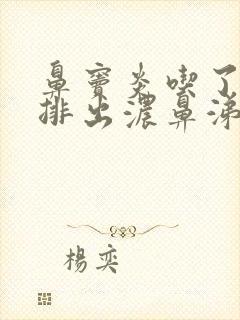 鼻竇炎喫了
排出濃鼻涕
楊奕